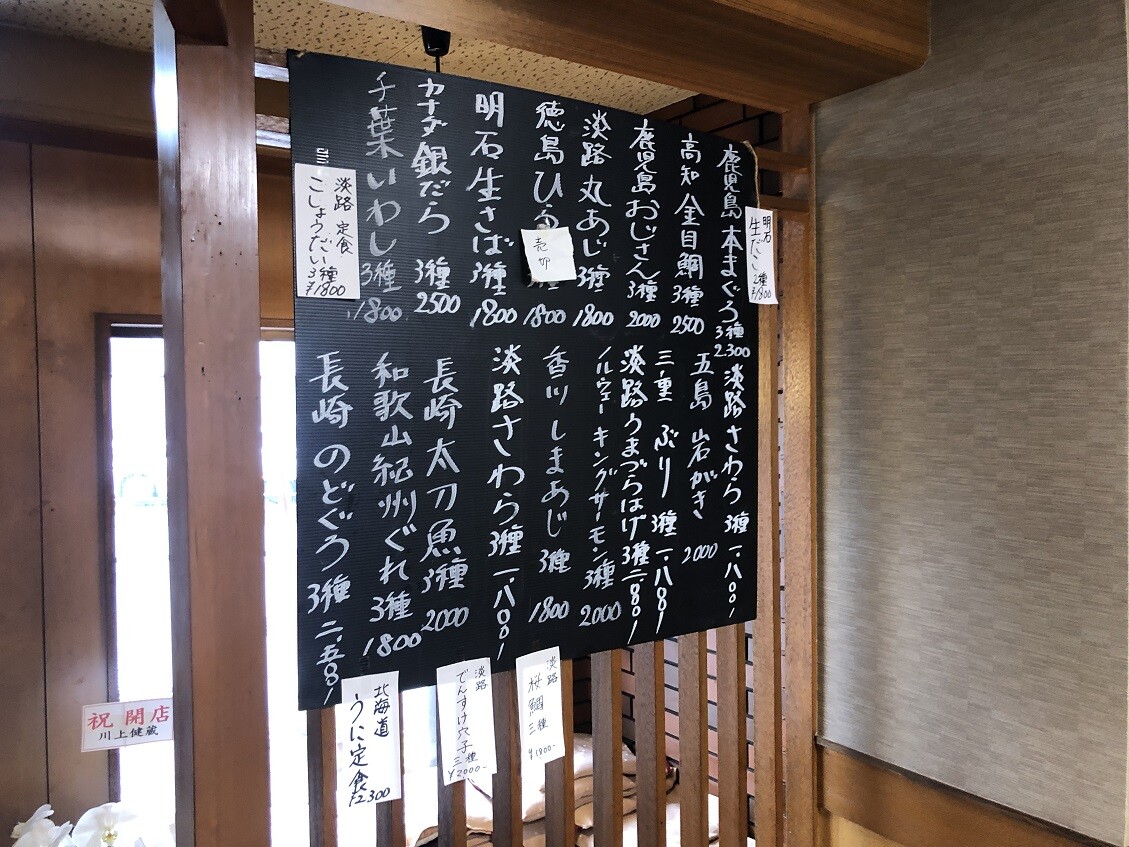 鹿児島 本まぐろ 3種 2.300
高知 金目鯛 3種 2500
鹿児島 おじさん 3種 2000
淡路 丸あじ 3種 1800
徳島 ひら
売切
1800
明石 生さば 3種 1800
カナダ 銀だら 3種 2500
千葉 いわし 3種 1800
淡路 さわら 3種 一.八〇〇
五島 岩がき 2000
三重 ぶり 3種 一.八〇〇
淡路 うまづらはげ 3種 二.八〇〇
ノルウェー キングサーモン 3種 2000
香川 しまあじ 3種 1800
淡路 さわら 3種 一.八〇〇
長崎 太刀魚 3種 2000
和歌山 紀州ぐれ 3種 1800
長崎 のどぐろ 3種 二.五〇〇
明石
生だこ 2種
¥1800
淡路 定食
こしょうだい 3種
¥1800
淡路
桜鯛 三種
¥1800-
淡路
でんすけ穴子 三種
¥2000-
北海道
うに定食
¥2300
祝 開店
川上健蔵